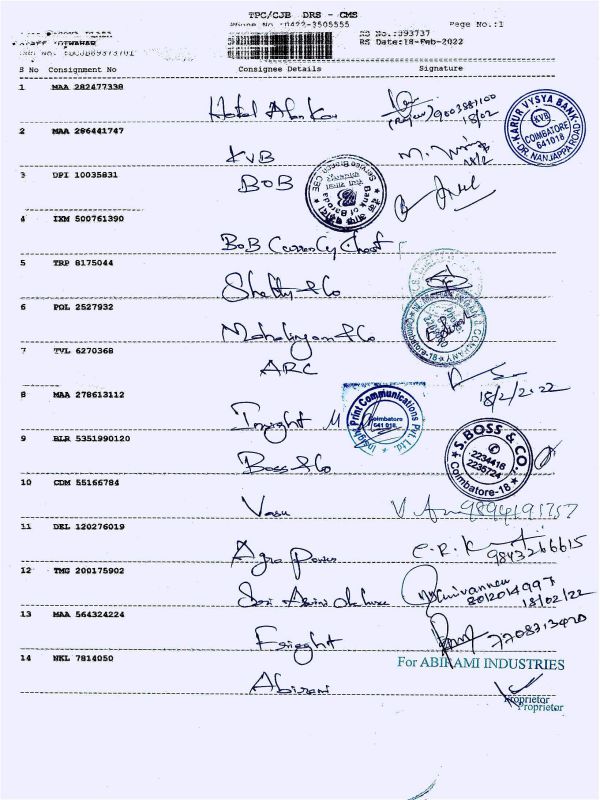 TPC/CJB DRS - CMS
Phone No :0422-3505555 Page No.:1
RS No.:393737
RS Date:18-Feb-2022
S No Consignment No Consignee Details Signature
1 MAA 282477338
9003887100
18/02
2 MAA 286441747
KVB
KARUR VYSYA BANK
KVB
COIMBATORE
641018
DR. NANJAPPA ROAD
3 DPI 10035831
BOB
Bank of Baroda
4 IXM 500761390
BoB Currency Chest
5 TRP 8175044
Shetty & Co
6 POL 2527932
Mahalingam & Co
Coimbatore-18
7 TVL 6270368
ARC
18/2/2022
8 MAA 278613112
Insight
Insight Print Communications Pvt. Ltd.
Coimbatore
641 018
9 BLR 5351990120
Boss & Co
S. BOSS & CO.
2234416
2235724
Coimbatore-18
10 CDM 55166784
Vasu
11 DEL 120276019
Agro Power
C.R. 
9843266615
12 TMG 200175902
8012014997
18/02/22
13 MAA 564324224
7708313420
14 NKL 7814050
Abirami
For ABIRAMI INDUSTRIES
Proprietor
Proprietor